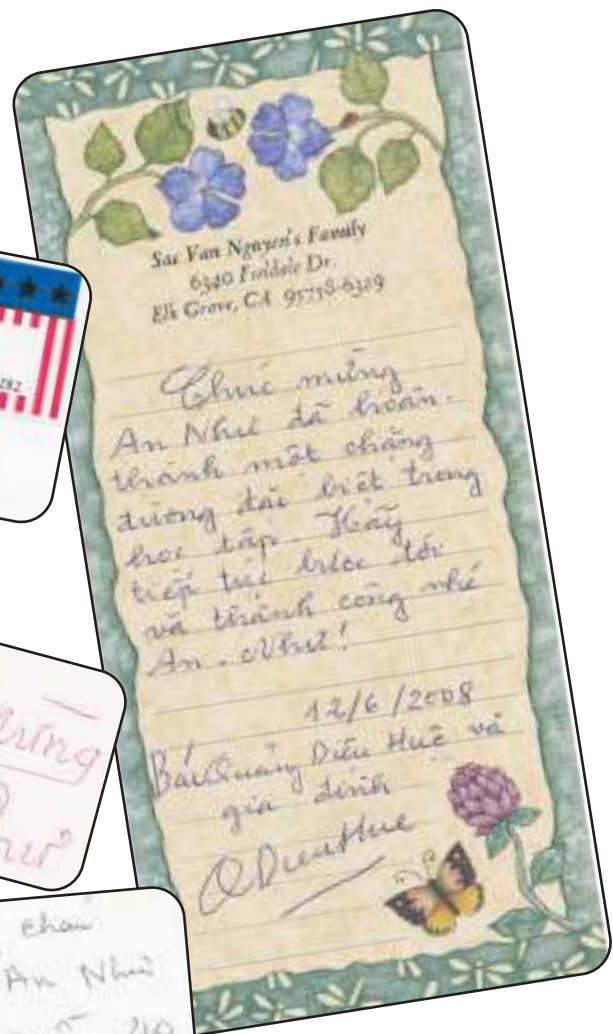 Sac Van Nguyen's Family
Elk Grove, CA 95758-6329
282
Chúc mừng
An Như đã hoàn
thành một chặng
đường đặc biệt trong
học tập. Hãy
tiếp tục bước tới
và thành công nhé
An-Như!
12/6/2008
Bác Quảng Diệu Huê và
gia đình
QDieuHue
An Như